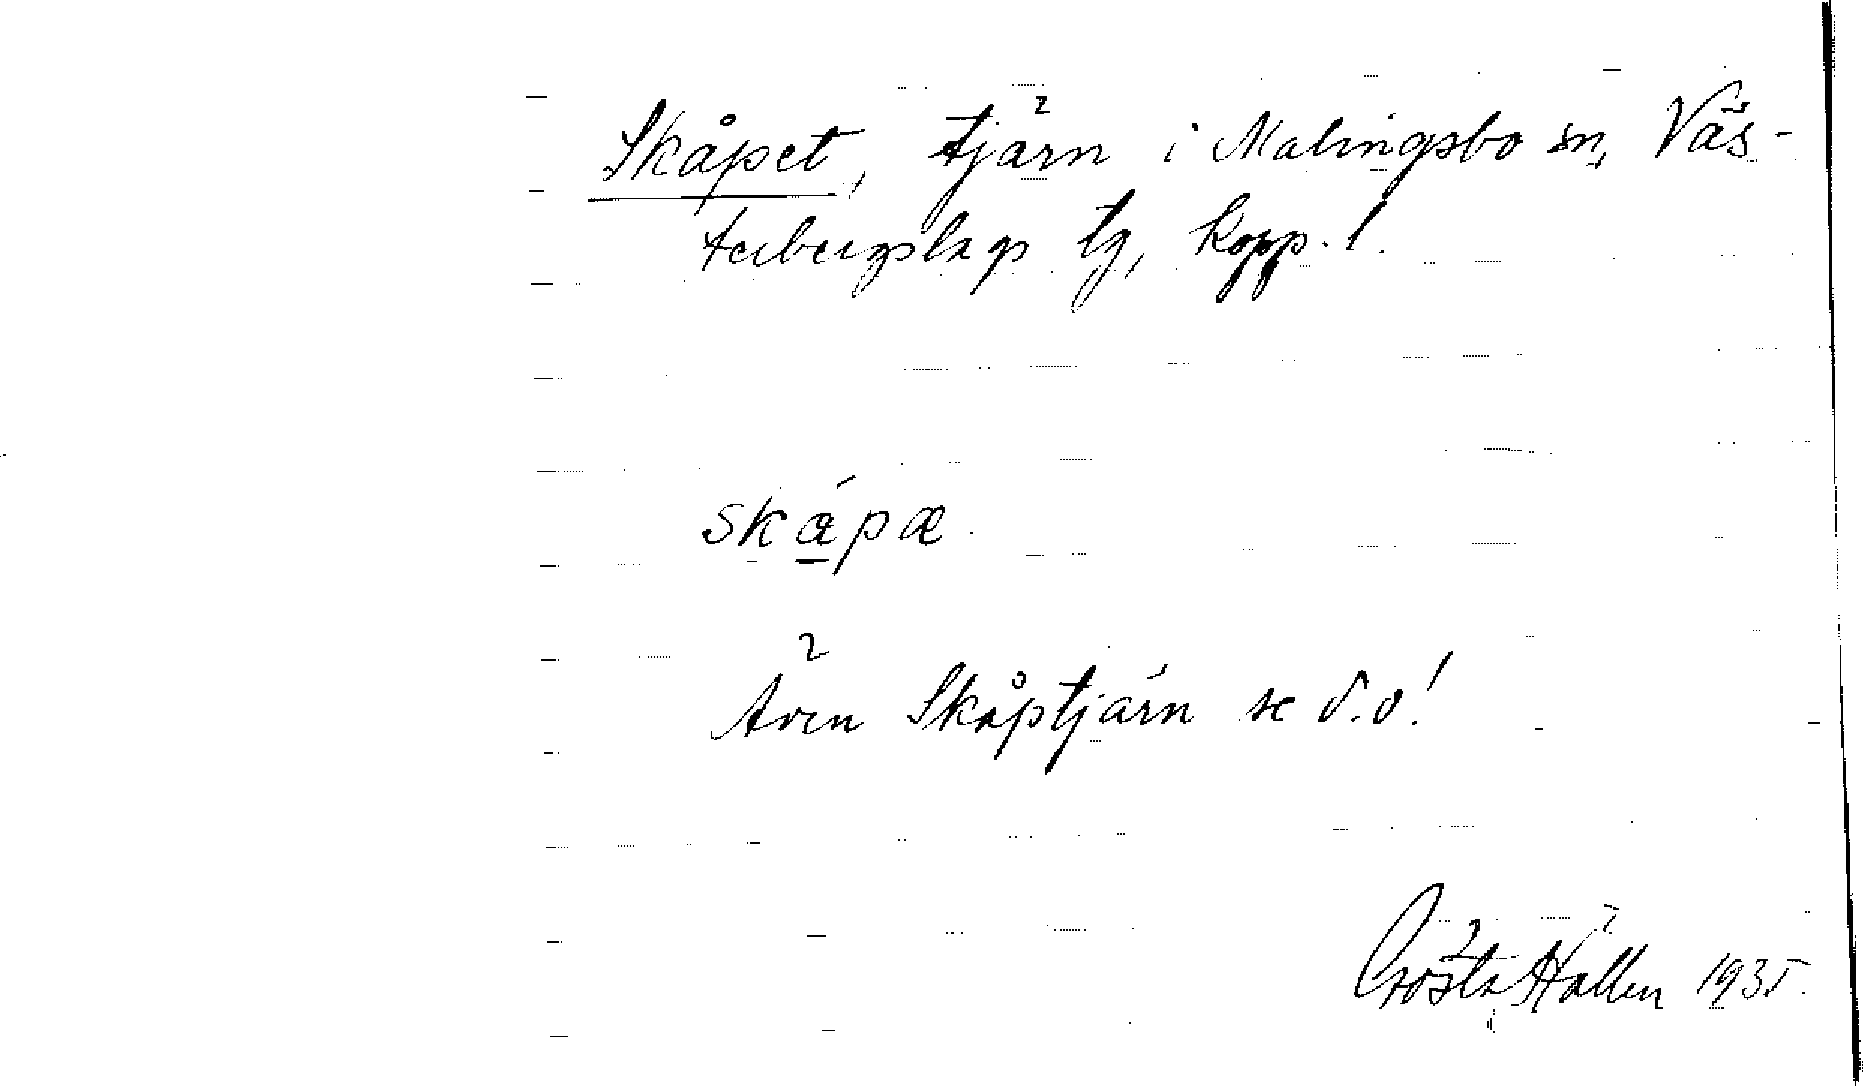 Skåpet, tjärn i Malingsbo sn, Väs-
terbergslags tg, Kopp. l.
skápæ
Även Skåptjärn se d.o!
Gösta Hällen 1935.